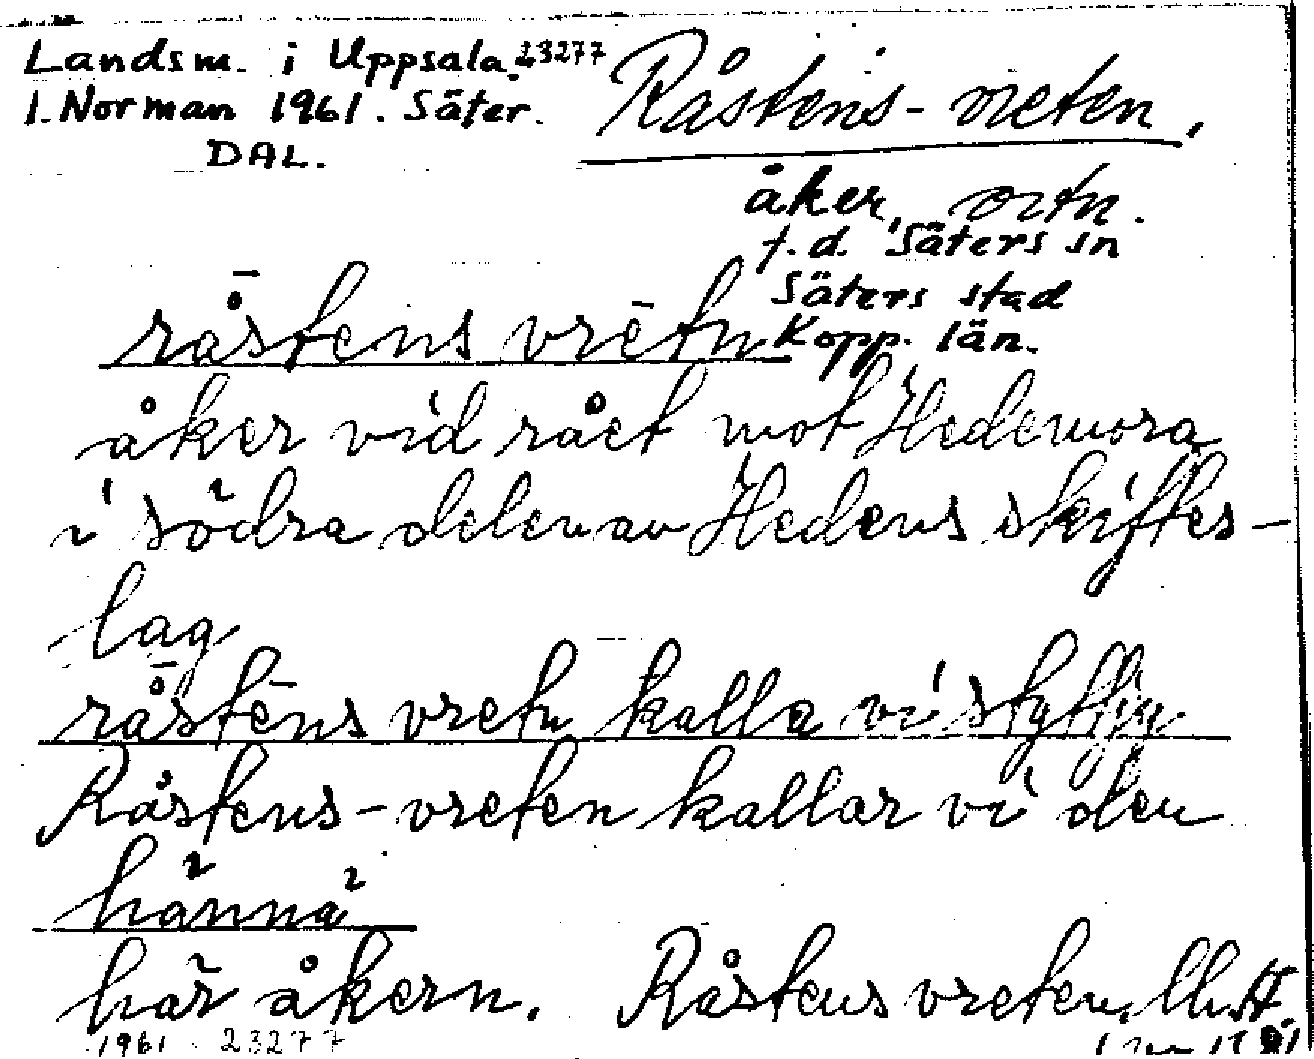 Landsm. i Uppsala. 23277
I. Norman 1961. Säter.
DAL.
Råstens-vreten.
åker, ortn.
f.d. Säters sn
Säters stad
Kopp. län.
rå̄stens vrētn
åker vid rået mot Hedemora
i södra delen av Hedens skiftes-
lag
rå̄stēns vretn kalla vi
Råstens-vreten kallar vi den
hännä
här åkern. Råstens vreten,
1961 23277